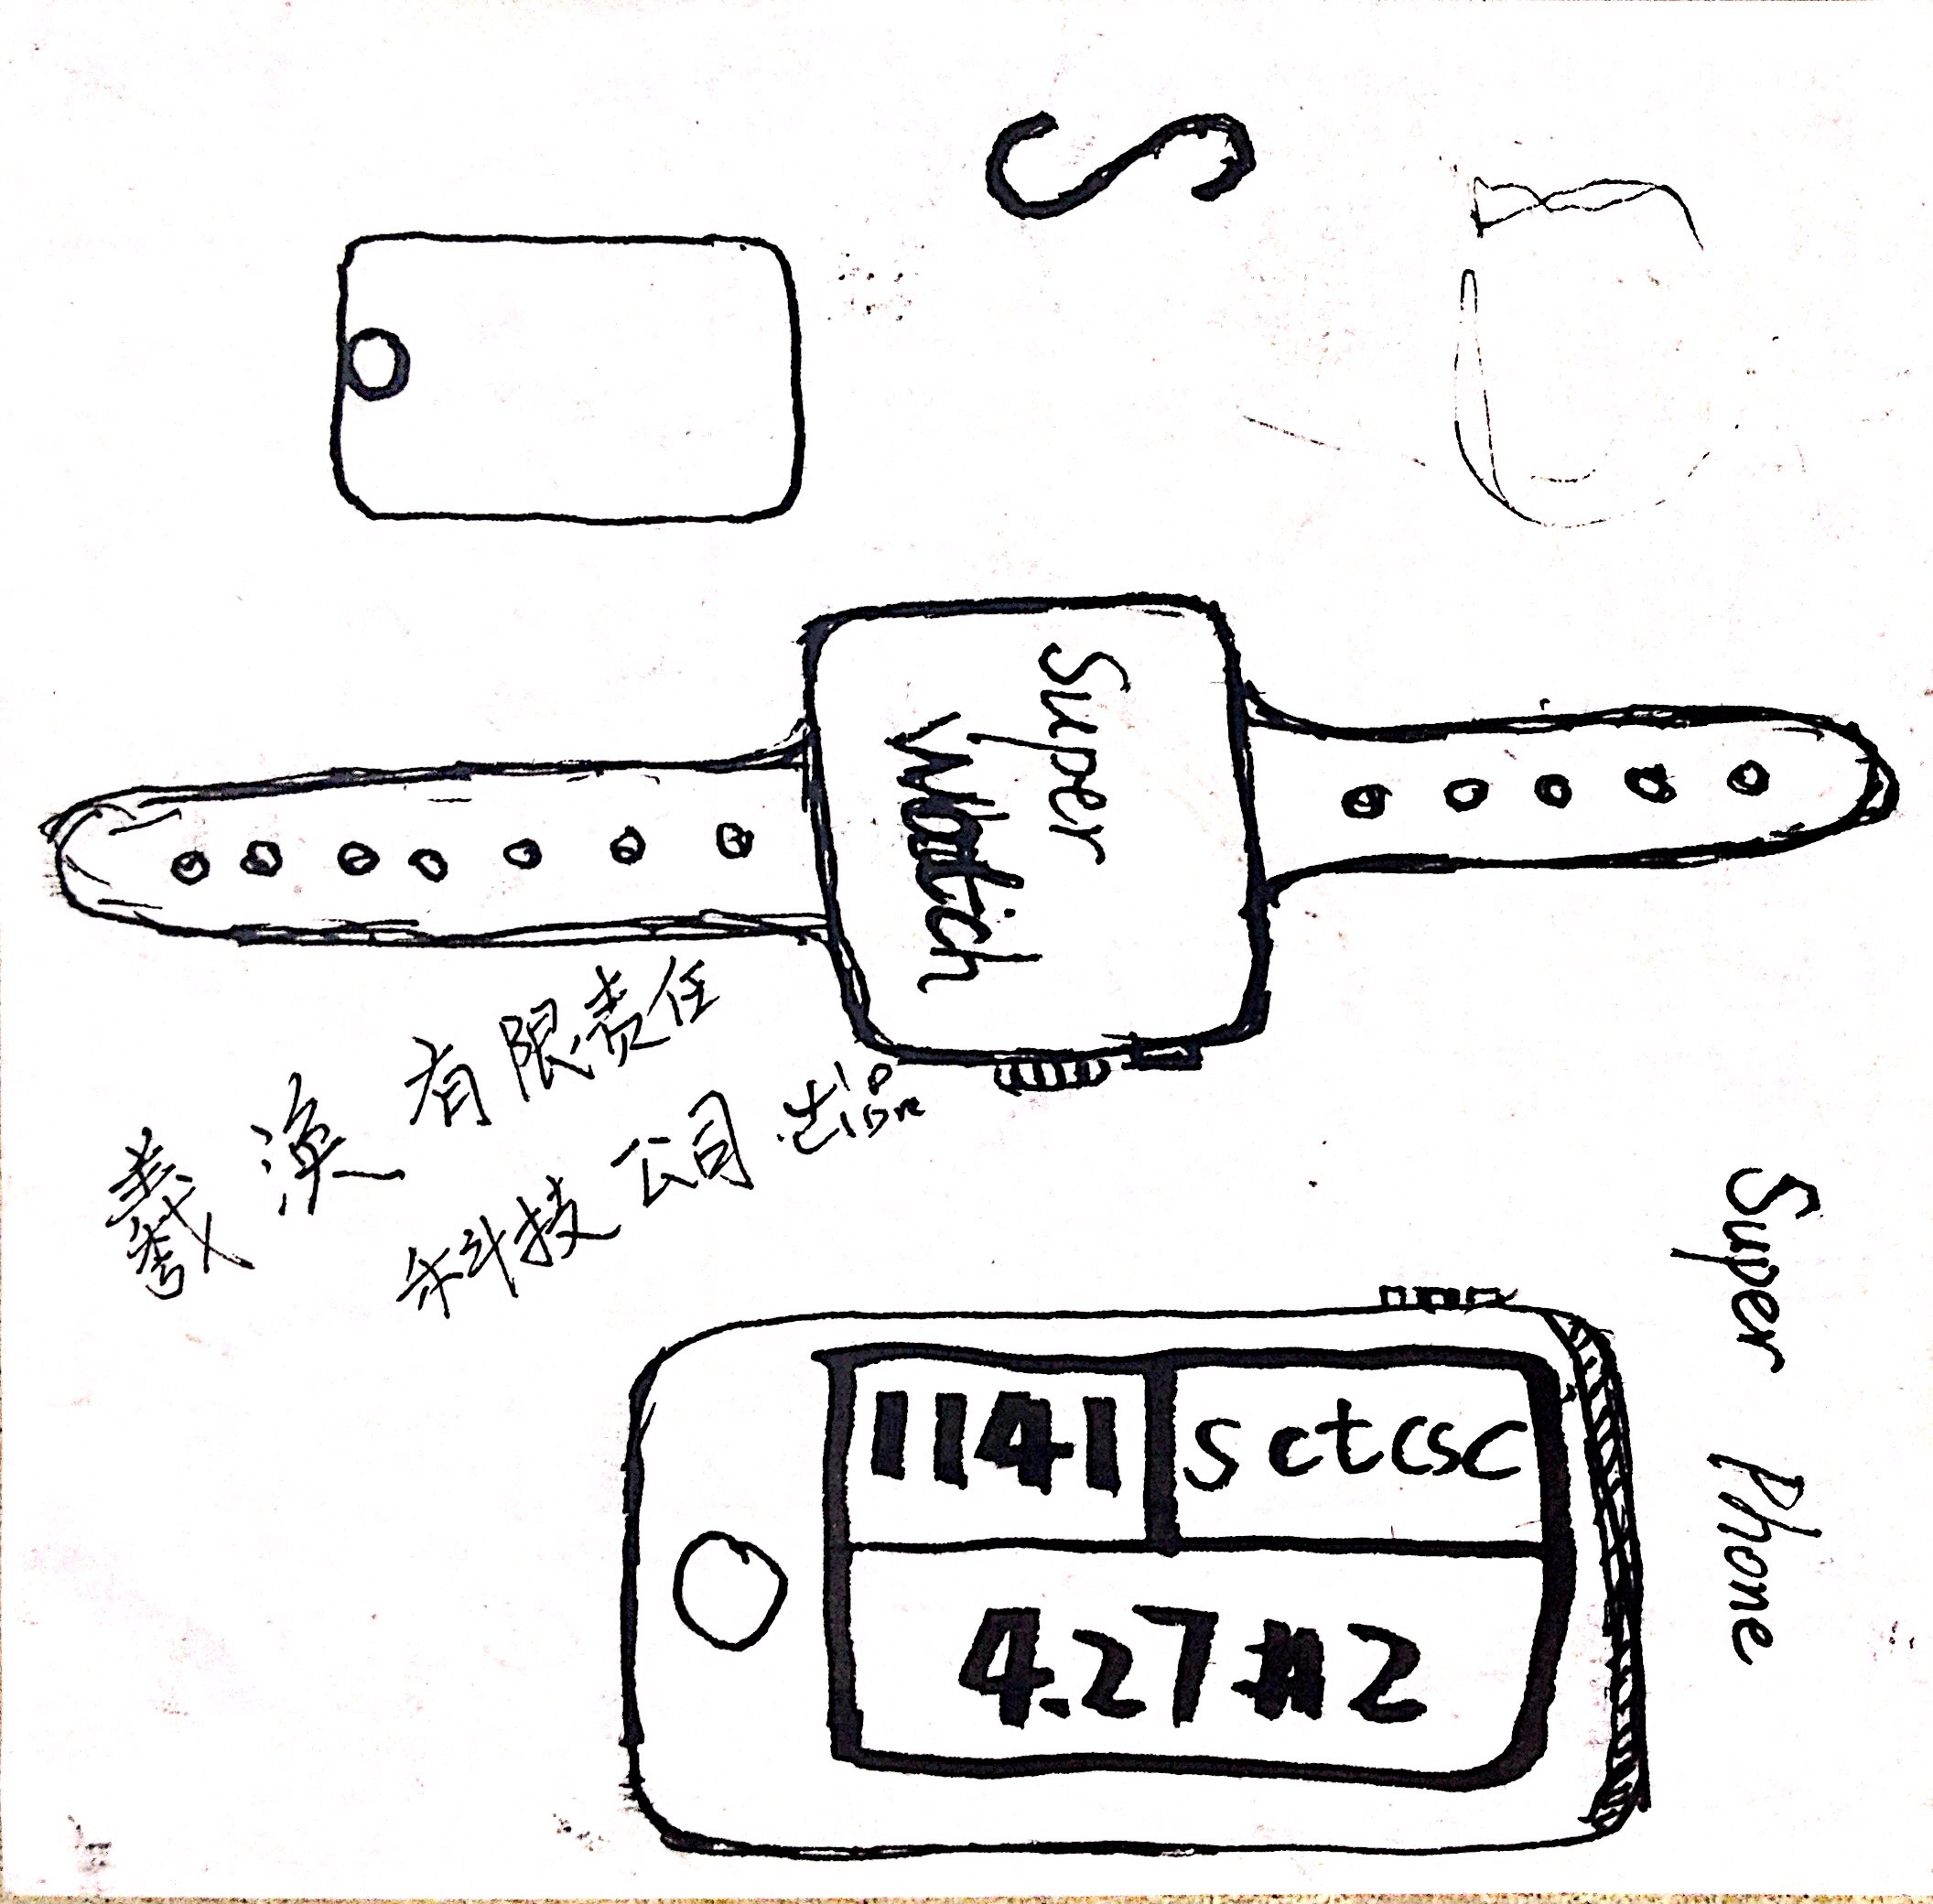 S
Super
Watch
有限责任
科技公司出品
Super Phone
1141
sctcsc
4.27#2